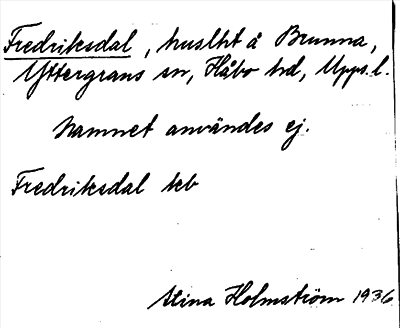 Fredriksdal, huslht å Brunna,
Yttergrans sn, Håbo hd, Upps. l.
Namnet användes ej.
Fredriksdal keb
Stina Holmström 1936